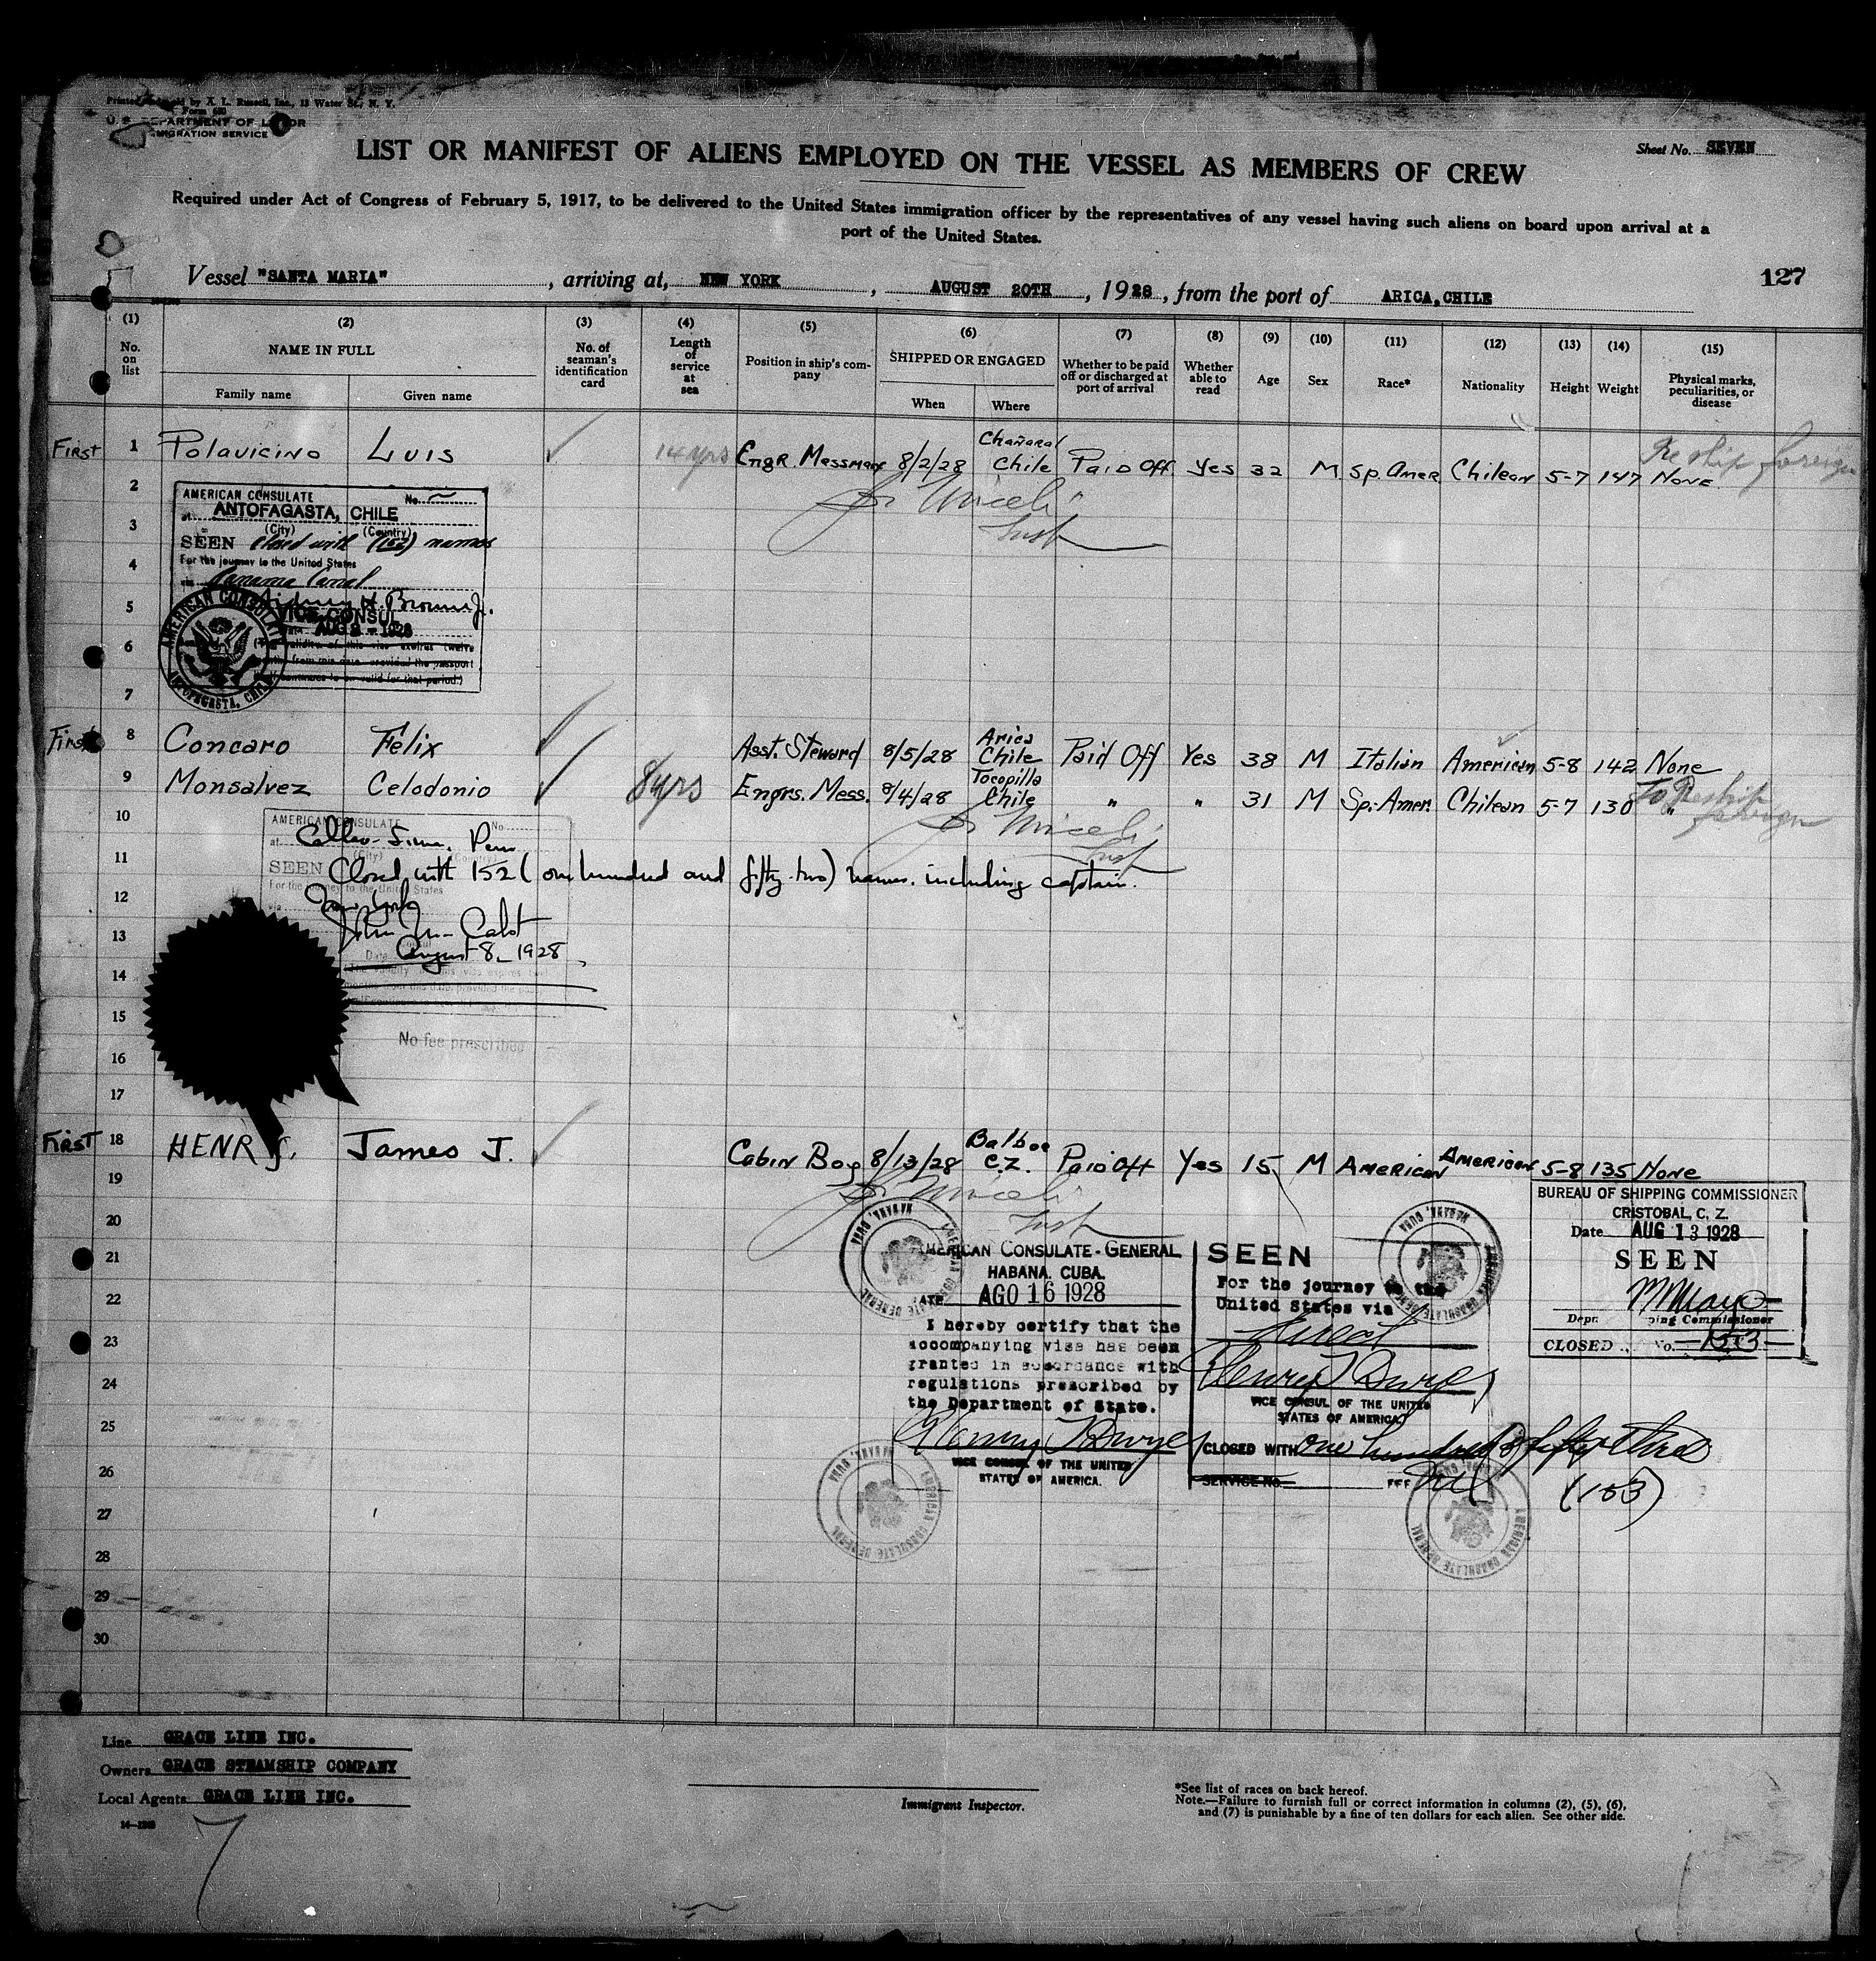 Printed and sold by A. L. Russell, Inc., 13 Water St., N. Y.
Form 680
U. S. DEPARTMENT OF LABOR
IMMIGRATION SERVICE
Sheet No. SEVEN
LIST OR MANIFEST OF ALIENS EMPLOYED ON THE VESSEL AS MEMBERS OF CREW
Required under Act of Congress of February 5, 1917, to be delivered to the United States immigration officer by the representatives of any vessel having such aliens on board upon arrival at a
port of the United States.
127
Vessel "SANTA MARIA", arriving at, NEW YORK, AUGUST 20TH, 1928, from the port of ARICA, CHILE
(1) (2) (3) (4) (5) (6) (7) (8) (9) (10) (11) (12) (13) (14) (15)
No. on list
NAME IN FULL
Family name
Given name
No. of seaman's identification card
Length of service at sea
Position in ship's company
SHIPPED OR ENGAGED
When
Where
Whether to be paid off or discharged at port of arrival
Whether able to read
Age
Sex
Race*
Nationality
Height
Weight
Physical marks, peculiarities, or disease
Reship foreign
First 1 Polavicino Luis 14 yrs Engr. Messman 8/2/28 Chañaral Chile Paid Off Yes 32 M Sp. Amer Chilean 5-7 147 None
2
3
4
5
6
7
AMERICAN CONSULATE No.
at ANTOFAGASTA, CHILE
(City) (Country)
SEEN closed with (152) names
For the journey to the United States
via Panama Canal
Sidney H. Brown Jr.
VICE CONSUL
AUG 2 - 1928
(The validity of this visa expires twelve
months from this date provided the passport
continues to be valid for that period.)
AMERICAN CONSULATE
ANTOFAGASTA, CHILE
First 8 Concaro Felix Asst. Steward 8/5/28 Arica Chile Paid Off Yes 38 M Italian American 5-8 142 None
9 Monsalvez Celodonio 8 yrs Engrs. Mess. 8/4/28 Tocopilla Chile " " 31 M Sp. Amer. Chilean 5-7 130 "
To Reship foreign
10
11
12
13
14
15
16
17
AMERICAN CONSULATE No.
at Callao-Lima, Peru
(City)
SEEN Closed with 152 (one hundred and fifty-two) names, including captain.
For the journey to the United States
via New York
John M. Cabot
Date August 8, 1928
No fee prescribed
First 18 HENRY. James J. Cabin Boy 8/13/28 Balboa C.Z. Paid Off Yes 15 M American American 5-8 135 None
19
20
21
22
23
24
25
26
27
28
29
30
BUREAU OF SHIPPING COMMISSIONER
CRISTOBAL, C. Z.
Date AUG 13 1928
SEEN
Shipping Commissioner
CLOSED No. 153
AMERICAN CONSULATE-GENERAL
HABANA. CUBA.
DATE AGO 16 1928
I hereby certify that the
accompanying visa has been
granted in accordance with
regulations prescribed by
the Department of State.
VICE CONSUL OF THE UNITED
STATES OF AMERICA.
SEEN
For the journey to the
United States via
direct
VICE CONSUL OF THE UNITED
STATES OF AMERICA
CLOSED WITH One hundred & fifty three
(153)
SERVICE NO. FEE Nil
AMERICAN CONSULATE GENERAL
HABANA, CUBA
Line GRACE LINE INC.
Owners GRACE STEAMSHIP COMPANY
Local Agents GRACE LINE INC.
Immigrant Inspector.
*See list of races on back hereof.
Note.—Failure to furnish full or correct information in columns (2), (5), (6),
and (7) is punishable by a fine of ten dollars for each alien. See other side.
7